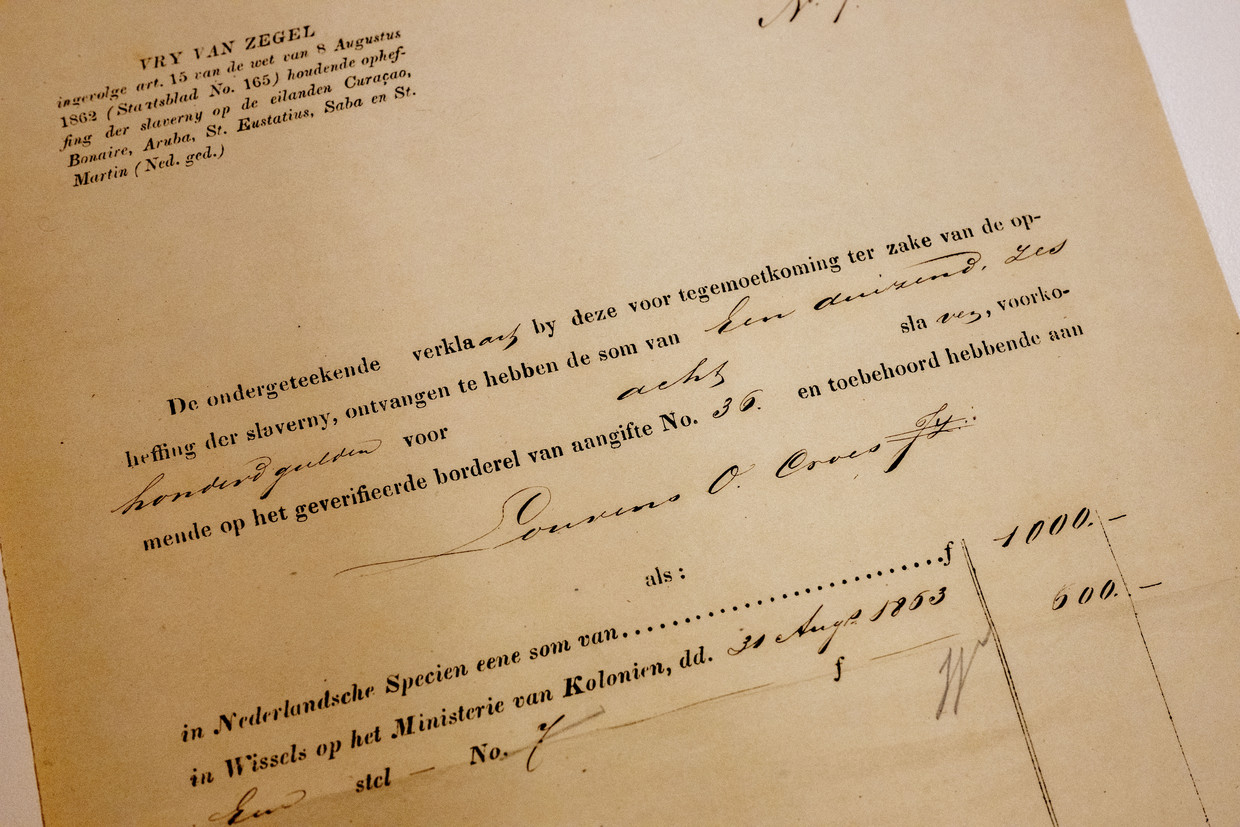 N. 7.
VRY VAN ZEGEL
ingevolge art. 15 van de wet van 8 Augustus
1862 (Staatsblad No. 165) houdende ophef-
fing der slaverny op de eilanden Curaçao,
Bonaire, Aruba, St. Eustatius, Saba en St.
Martin (Ned. ged.)
De ondergeteekende verklaart by deze voor tegemoetkoming ter zake van de op-
heffing der slaverny, ontvangen te hebben de som van Een duizend, zes
honderd gulden voor acht slaven, voorko-
mende op het geverifieerde borderel van aangifte No. 36. en toebehoord hebbende aan
Lourens O. Croes Jz.
als:
in Nederlandsche Specien eene som van.......................f 1000.—
in Wissels op het Ministerie van Kolonien, dd. 31 Augs 1863 600.—
Een stel — No. 7 f